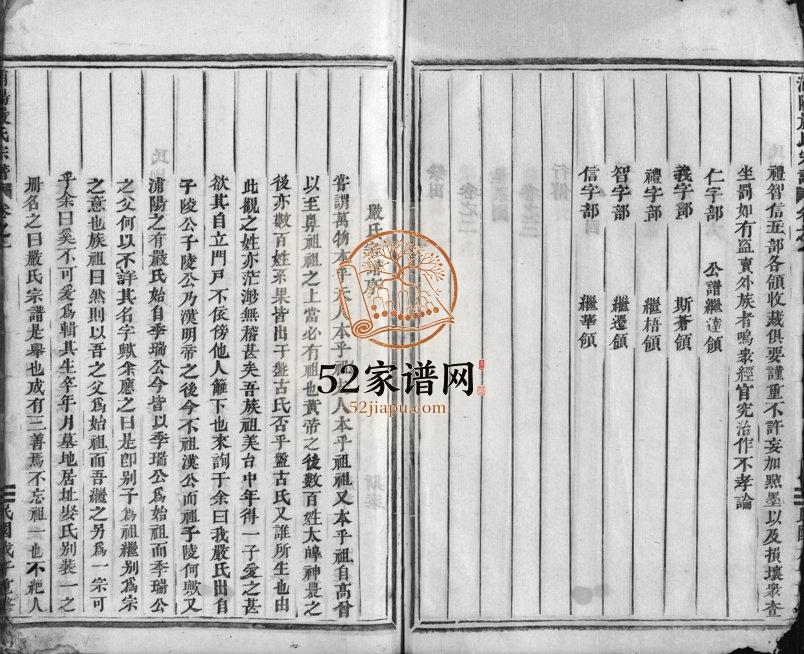 禮智信五部各領收藏俱要謹重不許妄加點墨以及損壞衆查
坐罰如有盜賣外族者鳴衆經官究治作不孝論
仁字部 公譜繼達領
義字部 斯蒼領
禮字部 繼梧領
智字部 繼遷領
信字部 繼華領
嚴氏宗譜序
嘗謂萬物本乎天人本乎祖人本乎祖祖又本乎祖自高曾
以至鼻祖祖之上當必有祖也黃帝之後數百姓太皞神農之
後亦數百姓系果皆出于盤古氏否乎盤古氏又誰所生也由
此觀之姓亦茫渺無稽甚矣吾族祖美台中年得一子愛之甚
欲其自立門戶不依傍他人籬下也來詢于余曰我嚴氏出自
子陵公子陵公乃漢明帝之後今不祖漢公而祖子陵何歟又
浦陽之有嚴氏始自季瑞公今皆以季瑞公爲始祖而季瑞公
之父何以不詳其名字歟余應之曰是卽别子為祖繼别為宗
之意也族祖曰然則以吾之父爲始祖而吾繼之另爲一宗可
乎余曰奚不可爰爲輯其生卒年月墓地居址娶氏别裝一之
册名之曰嚴氏宗譜是舉也成有三善焉不忘祖一也不絕人
浦陽嚴氏宗譜 卷之一
民國戊子重修
52家谱网
52jiapu.com